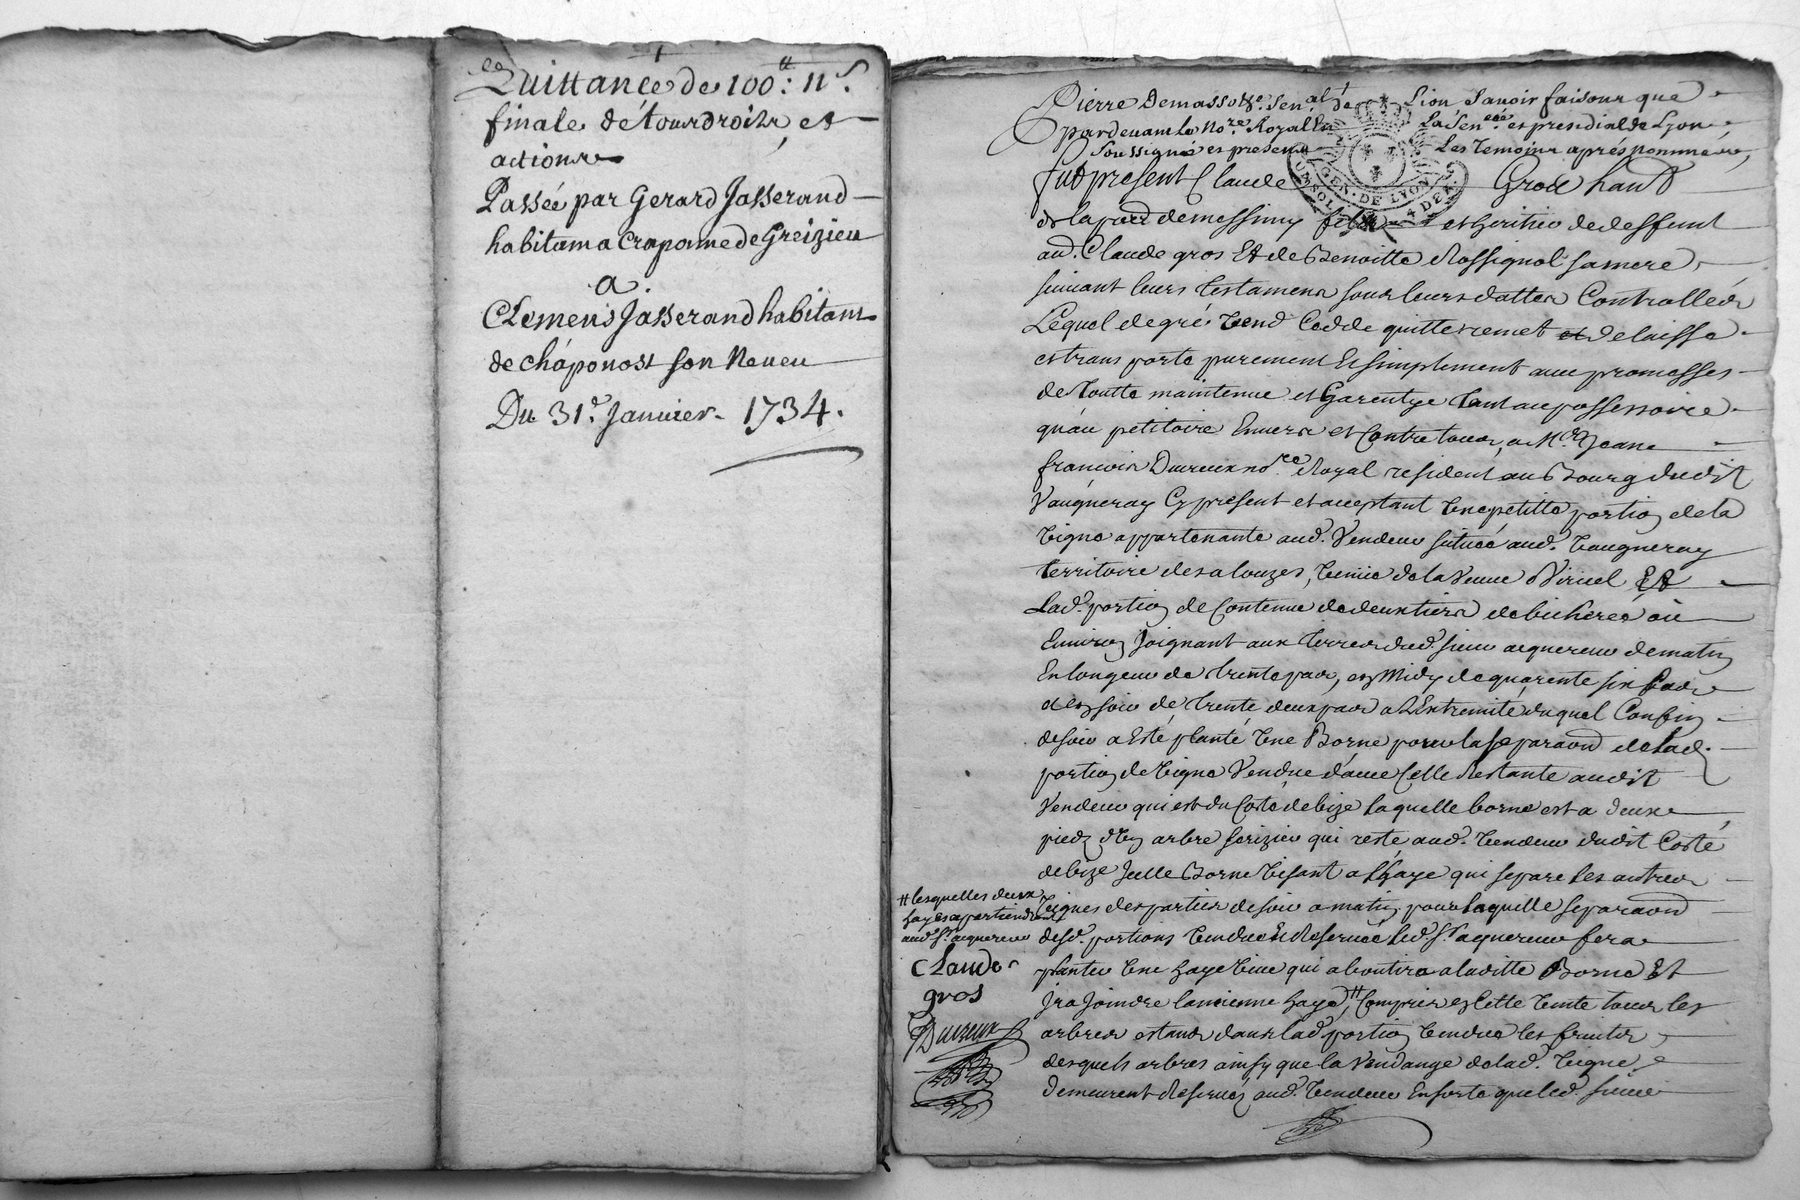 Quittance de 100:ᵗᵗ 11ˢ.
finale détous droits et
actions
Passée par Gerard Jasserand
habitant a Craponne de Greizieu
a.
Clemens Jasserand habitant
de cháponost son Neveu
Du 31ᵉ. Janvier. 1734.
Pierre Demasso sᵍʳ. Senᵃˡ de Lion, Sçavoir faisons que
pardevant Le Noʳᵉ. Royal En La Senᶜᵉᵉ et presidial de Lyon
Soussigné et presens Les temoins aprés nommés,
fut présent Claude Gros hant
de la parr de messimy fils et heritier de deffunt
aud. Claude gros Et de Benoitte Rossignol sa mere,
suivant leurs testamens sous leurs dattes Controllées
Lequel de gré vend Cedde quitte remet et delaisse
et transporte purement Et simplement avec promesses
de toutte maintenue et Garentye tant au possessoire
qu'au petitoire Envers et Contre tous, a Mᵉ Jean
francois Ducreux noʳᵉ Royal resident au Bourg dudit
Vaugneray Cy present et acceptant Une petitte portion de la
Vigne appartenante aud. Vendeur située aud. Vaugneray
territoire des alouzes, Venue de la Veuve Viricel Et
Lad. portion de Contenue de deux tiers de bicherée ou
Environ Joignant aux terres dud. sieur acquereur de matin
En longeur de trente pas, en Midy de quarente six pas
et en soir de trente deux pas a L'Extremité duquel Confin
de soir a Esté planté Une Borne pour la separaon de lad.
portion de Vigne Vendue d'avec Celle Restante audit
Vendeur qui est du Costé de bize laquelle borne est a deux
pieds d'Un arbre serizier qui reste aud. Vendeur dudit Costé
de bize Jcelle Borne Visant a L'haye qui separe Les autres
Vignes des parties de soir a matin pour laquelle separaon
desd. portions Vendue Et Reservée Led. Sʳ. acquereur fera
planter Une haye Vive qui aboutira a laditte Borne Et
Jra Joindre lancienne haye, # Compris en Cette Vente tous les
arbres estans dans lad portion Vendue les fruits
desquels arbres ainsy que la Vendange de lad. Vigne
demeurent Reservés aud. Vendeur En sorte que led. sieur
# lesquelles deux
hayes apartiendront
aud. Sʳ. acquereur
Claude
gros
Ducreux